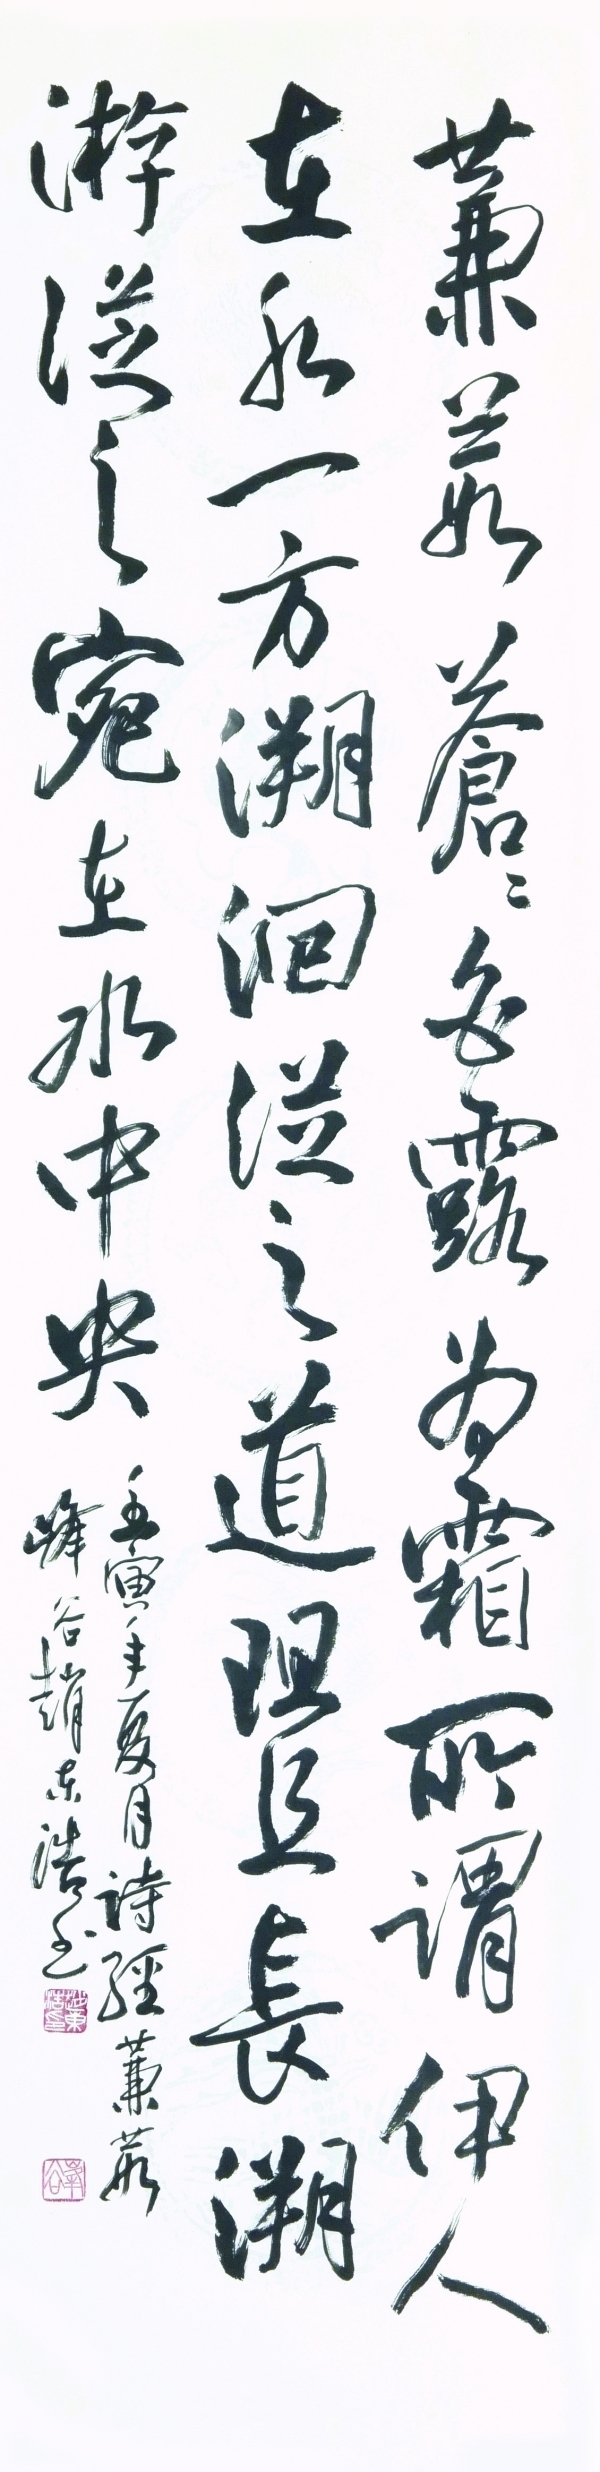 蒹葭蒼〻白露為霜所謂伊人
在水一方溯洄從之道阻且長溯
游從之宛在水中央
壬寅年夏月詩經蒹葭
峰谷趙東浩書